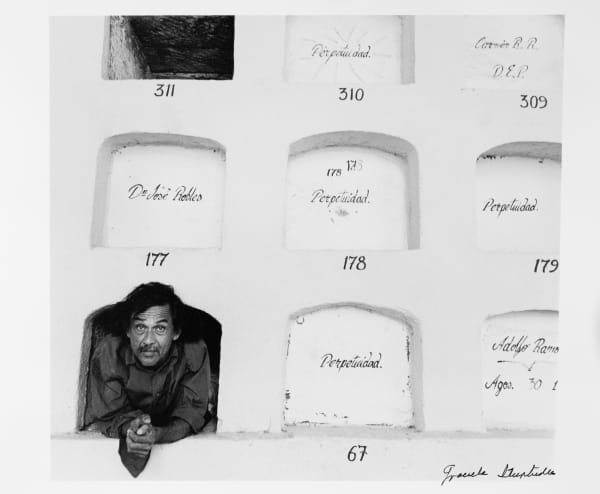 Perpetuidad.
Carnén R. R.
D.E.P.
311
310
309
Dr. José Robles
178 178
Perpetuidad.
Perpetuidad.
177
178
179
Perpetuidad.
Adolfo Ramo
Agos. 30 1
67
Graciela Iturbide